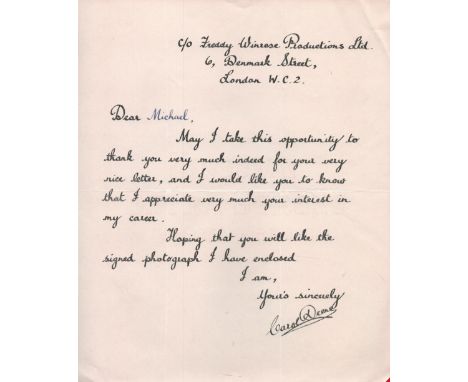 c/o Freddy Winrose Productions Ltd.
6, Denmark Street,
London W.C.2.
Dear Michael,
May I take this opportunity to
thank you very much indeed for your very
nice letter, and I would like you to know
that I appreciate very much your interest in
my career.
Hoping that you will like the
signed photograph I have enclosed
I am,
Your's sincerely
Carol Deene